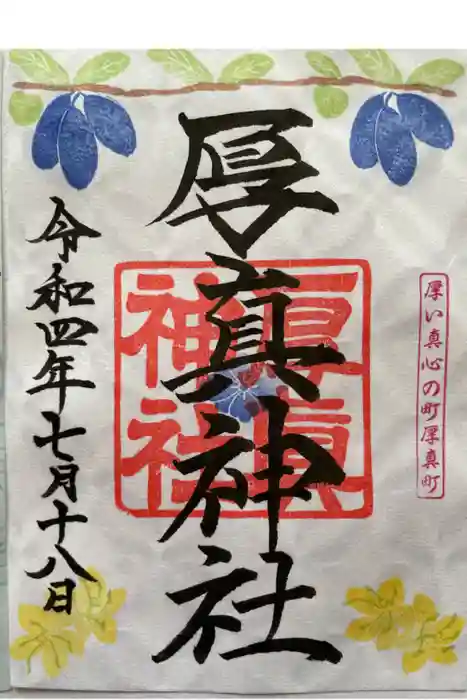 厚い真心の町厚真町
厚真神社
厚真
神社
令和四年七月十八日